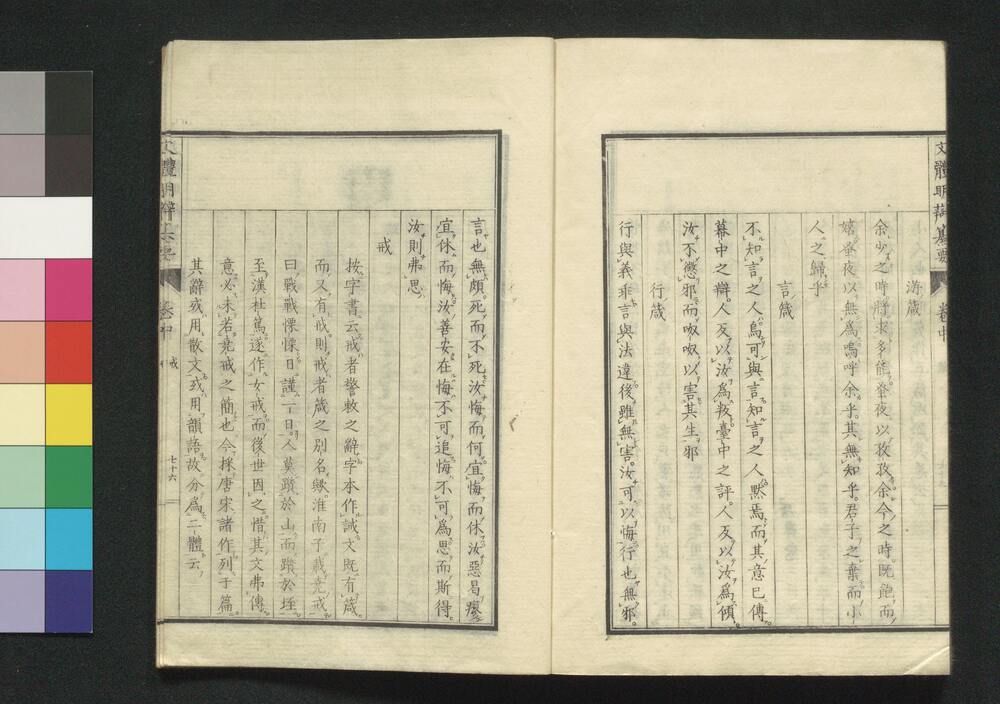 文體明辯纂要
卷中
游箴
余少之時將求多能蚤夜以孜孜余今之時既飽而
嬉蚤夜以無爲嗚呼余乎其無知乎君子之棄而小
人之歸乎
言箴
不知言之人烏可與言知言之人默焉而其意已傳
幕中之辯人反以汝爲叛臺中之評人反以汝爲傾
汝不懲邪而呶呶以害其生邪
行箴
行與義乖言與法違後雖無害汝可以悔行也無邪
言也無頗死而不死汝悔而何宜悔而休汝惡曷瘳
宜休而悔汝善安在悔不可追悔不可爲思而斯得
汝則弗思
戒
按字書云戒者警敕之辭字本作誡文既有箴
而又有戒則戒者箴之別名歟淮南子載堯戒
曰戰戰慄慄日謹一日人莫躓於山而躓於垤
至漢杜篤遂作女戒而後世因之惜其文弗傳
意必未若堯戒之簡也今採唐宋諸作列于篇
其辭或用散文或用韻語故分爲二體云
文體明辯纂要
卷中
戒
七十六